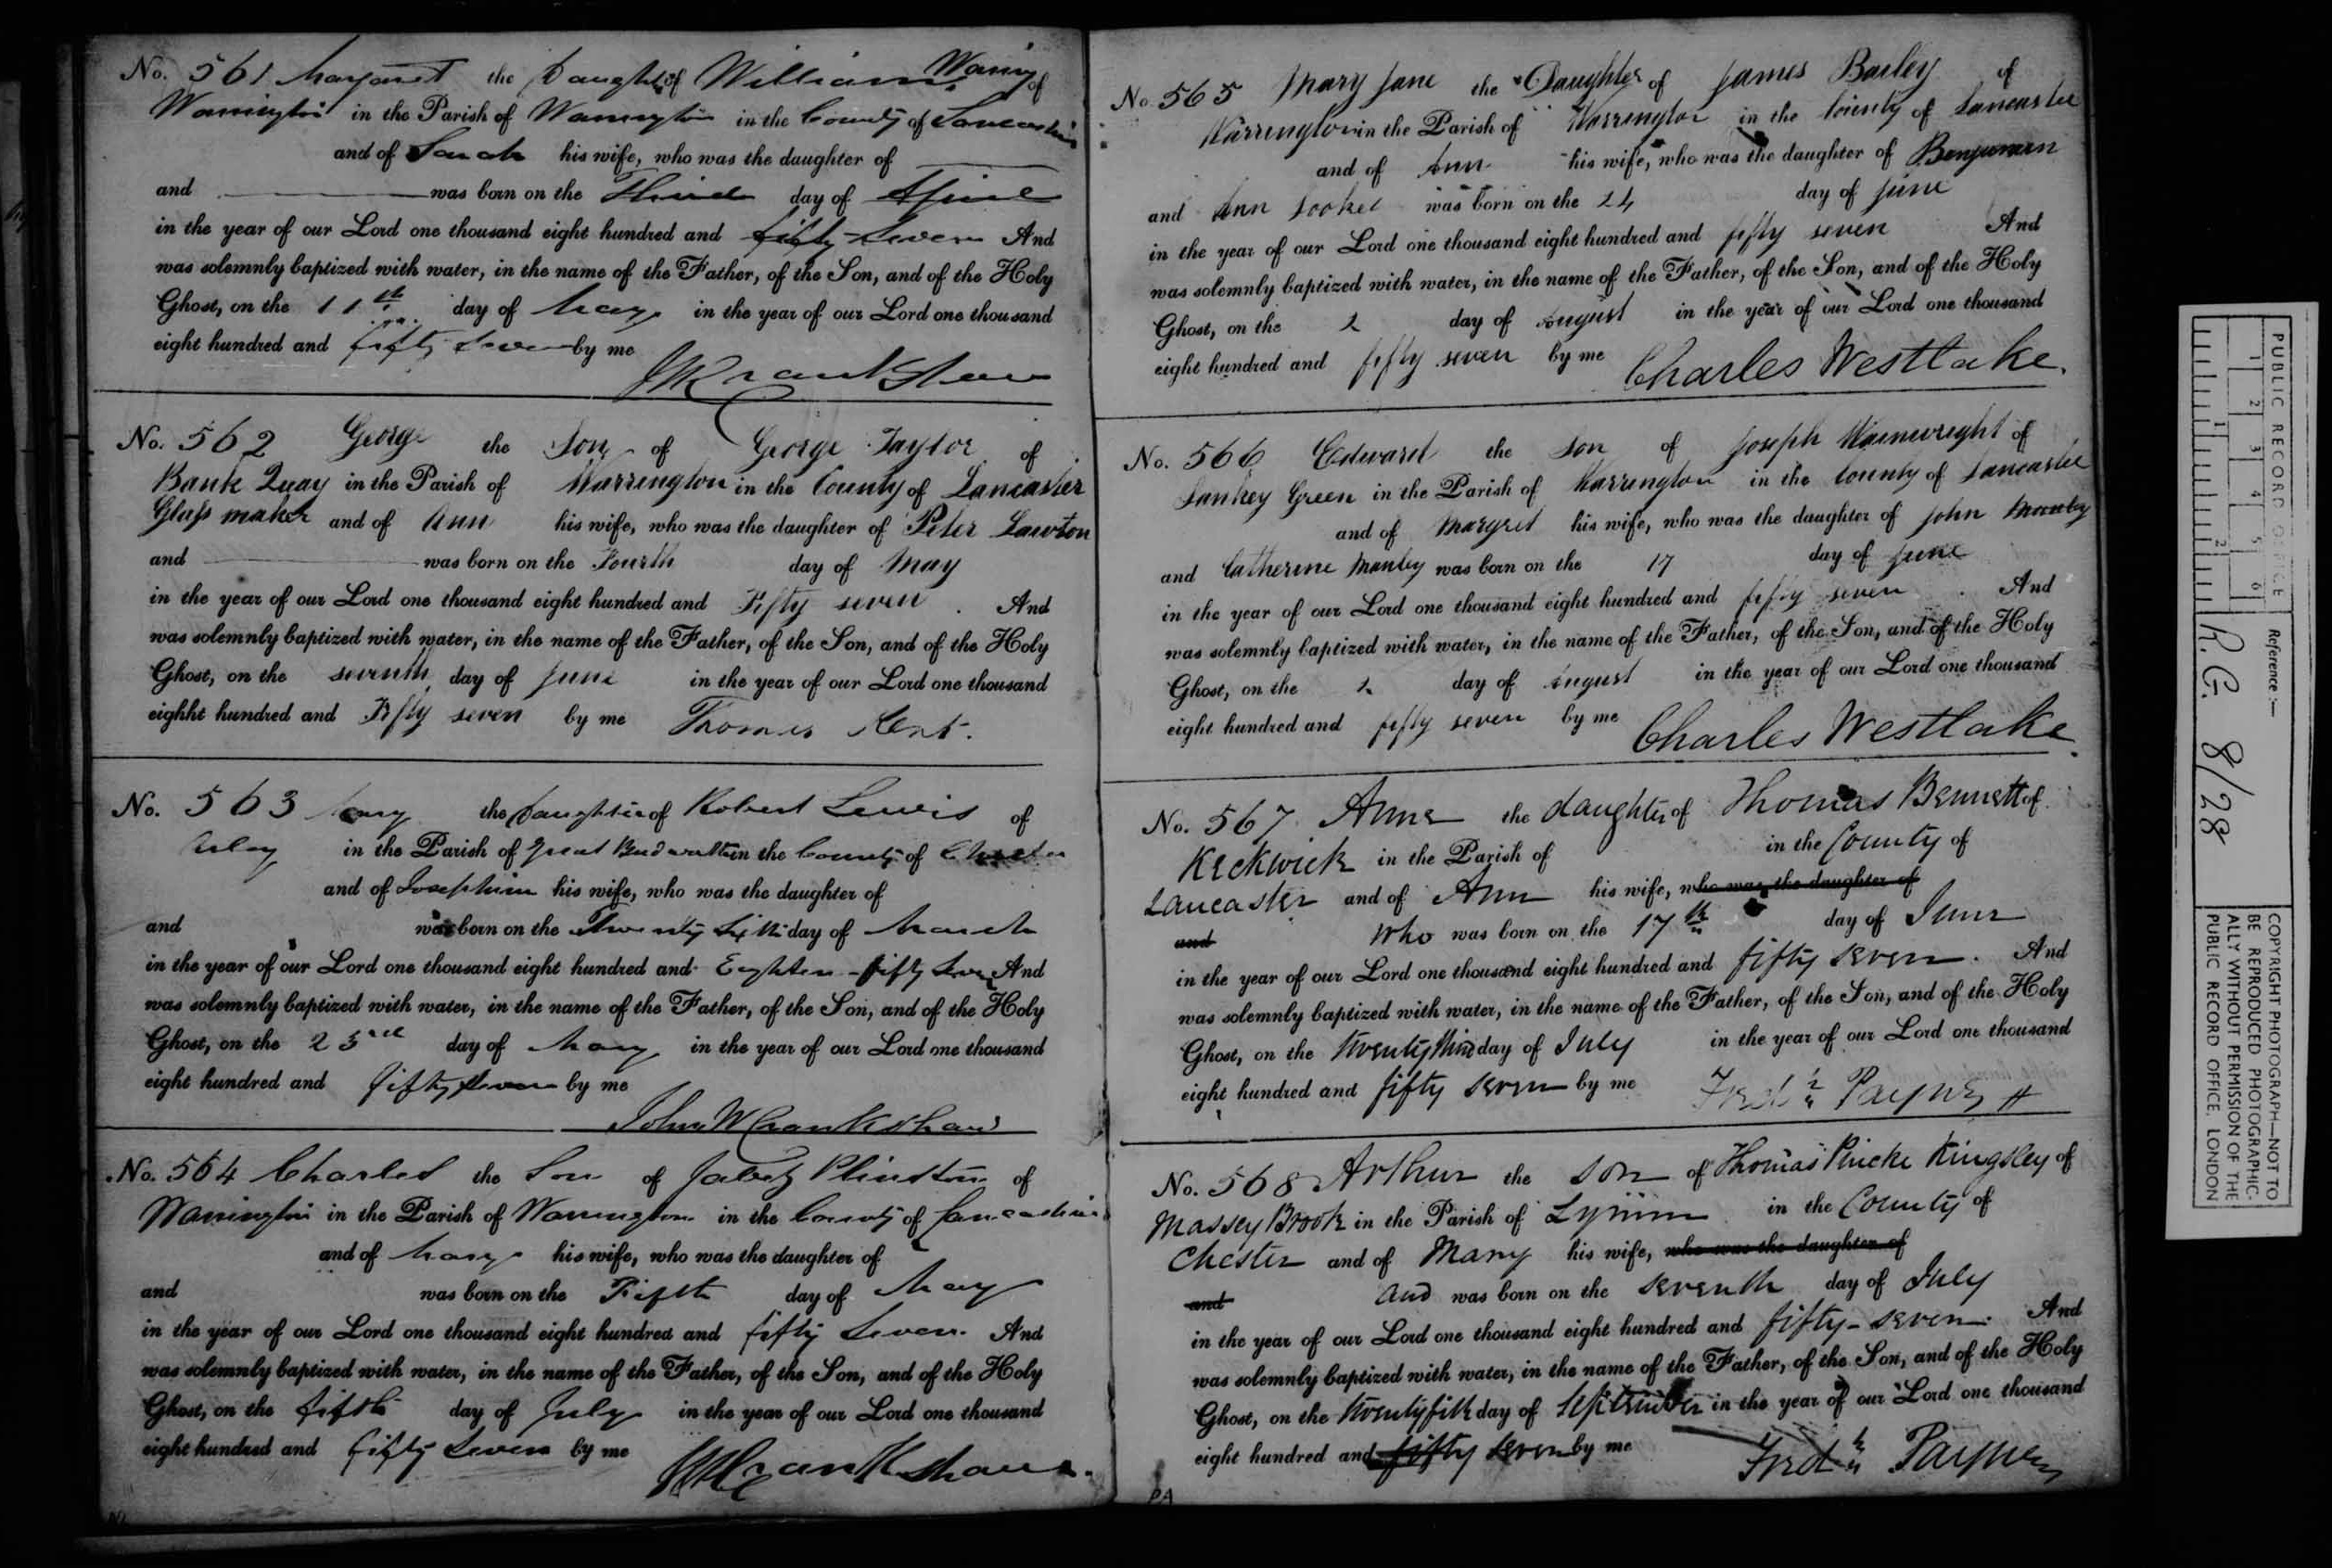 No. 561 Margaret the Daughter of William Waring of
Warrington in the Parish of Warrington in the County of Lancashire
and of Sarah his wife, who was the daughter of
and was born on the Third day of April
in the year of our Lord one thousand eight hundred and fifty-seven And
was solemnly baptized with water, in the name of the Father, of the Son, and of the Holy
Ghost, on the 11th day of May in the year of our Lord one thousand
eight hundred and fifty seven by me
JW Crankshaw
No. 562 George the Son of George Taylor of
Bank Quay in the Parish of Warrington in the County of Lancaster
Glass maker and of Ann his wife, who was the daughter of Peter Lawton
and was born on the Fourth day of May
in the year of our Lord one thousand eight hundred and Fifty seven. And
was solemnly baptized with water, in the name of the Father, of the Son, and of the Holy
Ghost, on the seventh day of June in the year of our Lord one thousand
eighht hundred and Fifty seven by me Thomas Kent.
No. 563 Mary the Daughter of Robert Lewis of
Arley in the Parish of Great Budworth in the County of Chester
and of Josephine his wife, who was the daughter of
and was born on the Twenty Sixth day of March
in the year of our Lord one thousand eight hundred and Eighteen-fifty Seven And
was solemnly baptized with water, in the name of the Father, of the Son, and of the Holy
Ghost, on the 23rd day of May in the year of our Lord one thousand
eight hundred and fifty seven by me
John W Crankshaw
No. 564 Charles the Son of Jabez Plinston of
Warrington in the Parish of Warrington in the County of Lancashire
and of Mary his wife, who was the daughter of
and was born on the Fifth day of May
in the year of our Lord one thousand eight hundred and fifty Seven. And
was solemnly baptized with water, in the name of the Father, of the Son, and of the Holy
Ghost, on the fifth day of July in the year of our Lord one thousand
eight hundred and fifty seven by me
JW Crankshaw.
No. 565 Mary Jane the Daughter of James Bailey of
Warrington in the Parish of Warrington in the County of Lancaster
and of Ann his wife, who was the daughter of Benjamin
and Ann was born on the 24 day of June
in the year of our Lord one thousand eight hundred and fifty seven And
was solemnly baptized with water, in the name of the Father, of the Son, and of the Holy
Ghost, on the 2 day of August in the year of our Lord one thousand
eight hundred and fifty seven by me Charles Westlake.
No. 566 Edward the son of Joseph Wainwright of
Sankey Green in the Parish of Warrington in the County of Lancaster
and of Margret his wife, who was the daughter of John
and Catherine Manley was born on the 17 day of June
in the year of our Lord one thousand eight hundred and fifty seven. And
was solemnly baptized with water, in the name of the Father, of the Son, and of the Holy
Ghost, on the 2 day of August in the year of our Lord one thousand
eight hundred and fifty seven by me Charles Westlake.
No. 567 Anne the daughter of Thomas Bennett of
Keckwick in the Parish of in the County of
Lancaster and of Ann his wife, who was the daughter of
and who was born on the 17th day of June
in the year of our Lord one thousand eight hundred and fifty seven. And
was solemnly baptized with water, in the name of the Father, of the Son, and of the Holy
Ghost, on the twenty third day of July in the year of our Lord one thousand
eight hundred and fifty seven by me Fredk Payne
No. 568 Arthur the son of Thomas Kingsley of
Massey Brook in the Parish of Lymm in the County of
Chester and of Mary his wife, who was the daughter of
and and was born on the seventh day of July
in the year of our Lord one thousand eight hundred and fifty-seven. And
was solemnly baptized with water, in the name of the Father, of the Son, and of the Holy
Ghost, on the twenty fifth day of September in the year of our Lord one thousand
eight hundred and fifty seven by me
Fredk Payne
PUBLIC RECORD OFFICE
1 2 3 4 5 6
1 2
Reference:—
R.G. 8/28
COPYRIGHT PHOTOGRAPH—NOT TO
BE REPRODUCED PHOTOGRAPHIC-
ALLY WITHOUT PERMISSION OF THE
PUBLIC RECORD OFFICE, LONDON